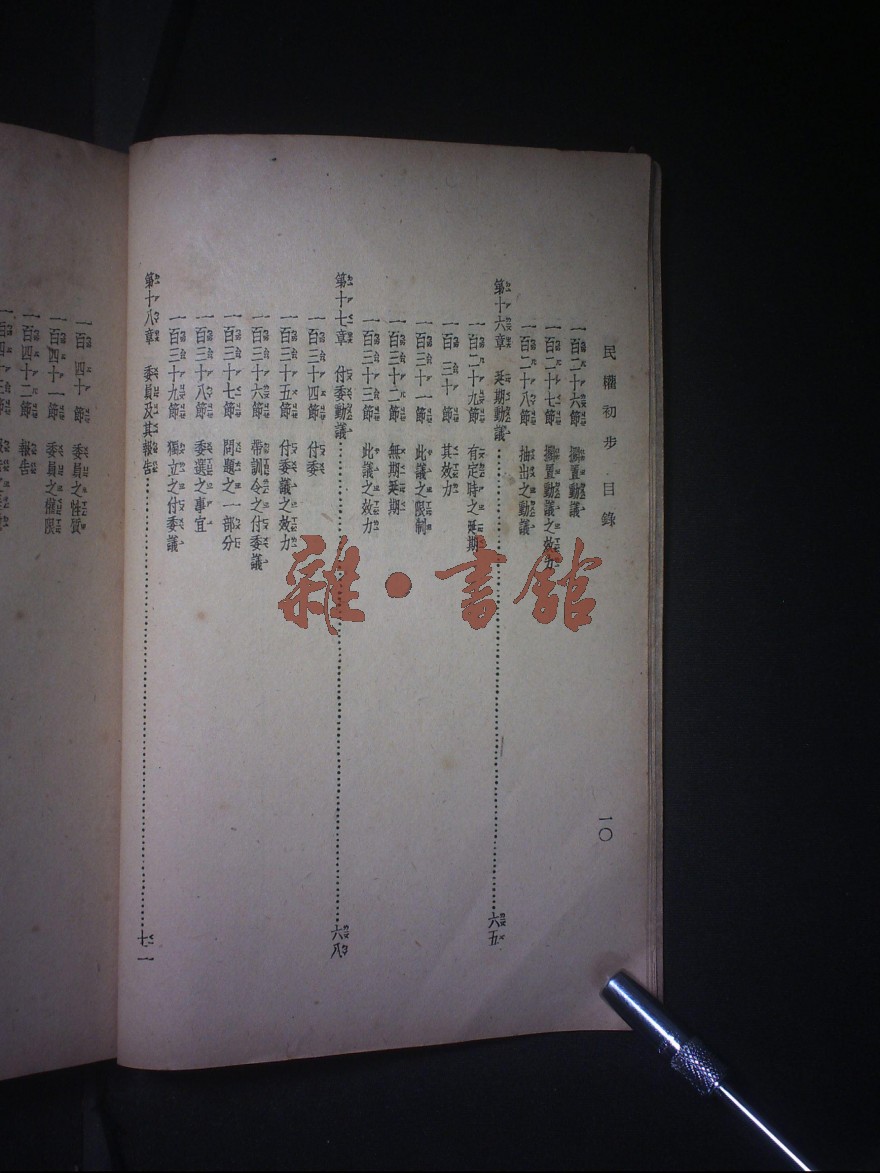 民權初步 目錄
一〇
一百二十六節 擱置動議
一百二十七節 擱置動議之效力
一百二十八節 抽出之動議
第十六章 延期動議……六五
一百二十九節 有定時之延期
一百三十節 其效力
一百三十一節 此議之限制
一百三十二節 無期延期
一百三十三節 此議之效力
第十七章 付委動議……六八
一百三十四節 付委
一百三十五節 付委議之效力
一百三十六節 帶訓令之付委議
一百三十七節 問題之一部分
一百三十八節 委選之事宜
一百三十九節 獨立之付委議
第十八章 委員及其報告……七一
一百四十節 委員之性質
一百四十一節 委員之權限
一百四十二節 報告
雜·書館